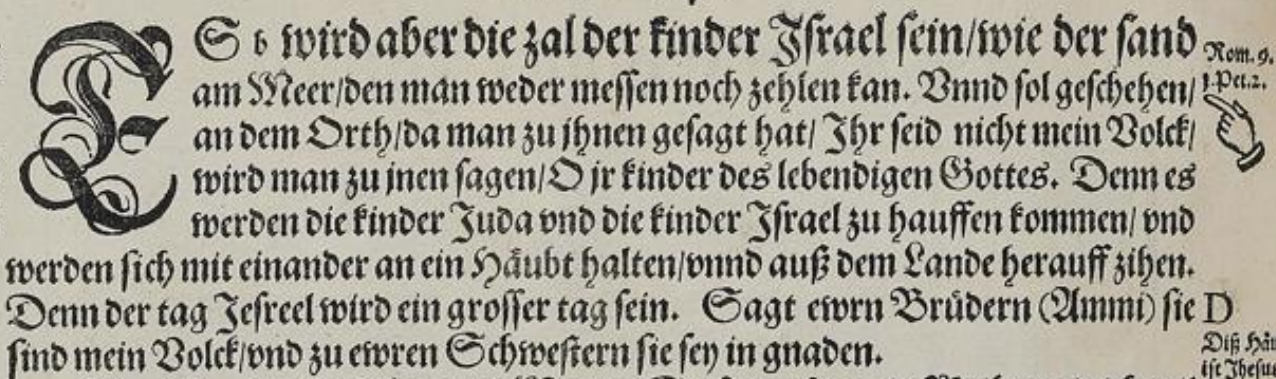 ES b wird aber die zal der kinder Jſrael ſein/wie der ſand
am Meer/den man weder meſſen noch zehlen kan. Vnnd ſol geſchehen/
an dem Orth/da man zu jhnen geſagt hat/ Jhr ſeid nicht mein Volck/
wird man zu jnen ſagen/O jr kinder des lebendigen Gottes. Denn es
werden die kinder Juda vnd die kinder Jſrael zu hauffen kommen/ vnd
werden ſich mit einander an ein Häubt halten/vnnd auß dem Lande herauff zihen.
Denn der tag Jeſreel wird ein groſſer tag ſein. Sagt ewrn Brüdern (Ammi) ſie
ſind mein Volck/vnd zu ewren Schweſtern ſie ſey in gnaden.
Rom. 9.
1. Pet. 2.
D
Diß Häu
iſt Jheſu